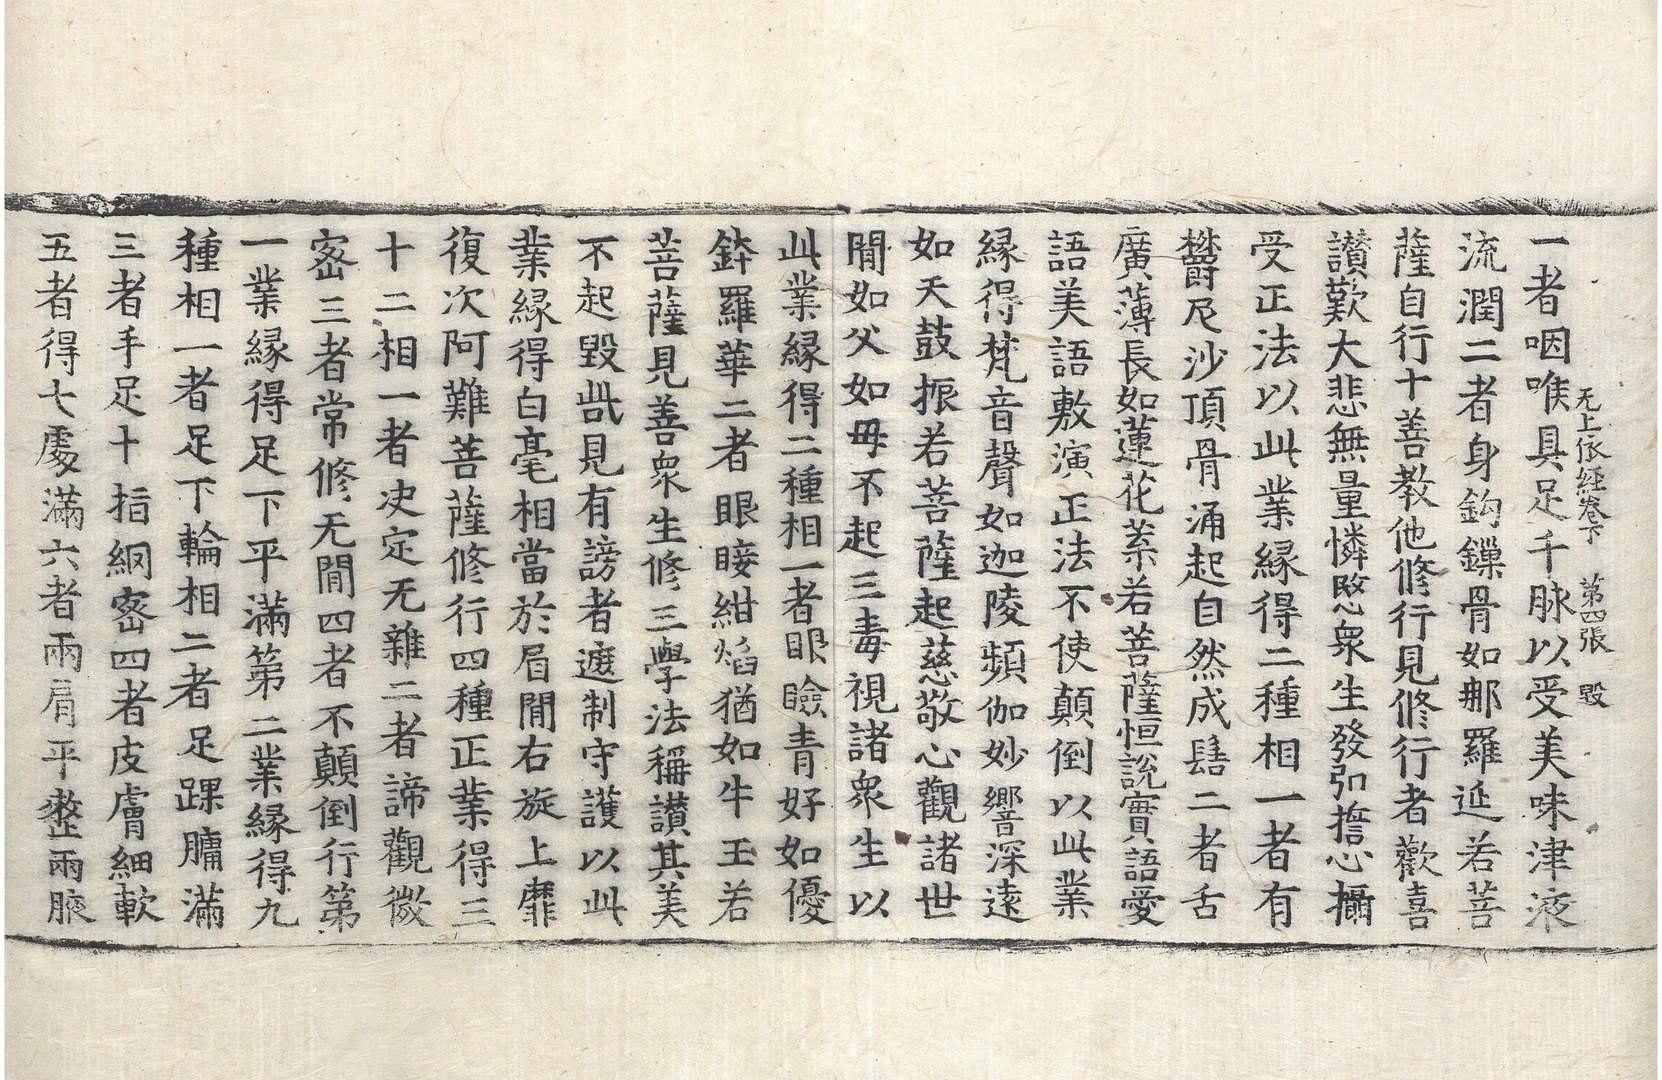 无上依經卷下 第四張 毀
一者咽唯具足千脉以受美味津液
流潤二者身鉤鏁骨如那羅延若菩
薩自行十善教他修行見修行者歡喜
讃歎大悲無量憐愍衆生發弘擔心攝
受正法以此業緣得二種相一者有
欝尼沙頂骨涌起自然成髻二者舌
廣薄長如蓮花葉若菩薩恒說實語愛
語美語敷演正法不使顛倒以此業
緣得梵音聲如迦陵頻伽妙響深遠
如天鼓振若菩薩起慈敬心觀諸世
間如父如母不起三毒視諸衆生以
此業緣得二種相一者眼瞼青好如優
鉢羅華二者眼睫紺焰猶如牛王若
菩薩見善衆生修三學法稱讃其美
不起毀呰見有謗者遮制守護以此
業緣得白毫相當於眉間右旋上靡
復次阿難菩薩修行四種正業得三
十二相一者决定无雜二者諦觀微
密三者常修无間四者不顛倒行第
一業緣得足下平滿第二業緣得九
種相一者足下輪相二者足踝𦟛滿
三者手足十指網密四者皮膚細軟
五者得七處滿六者兩肩平整兩腋